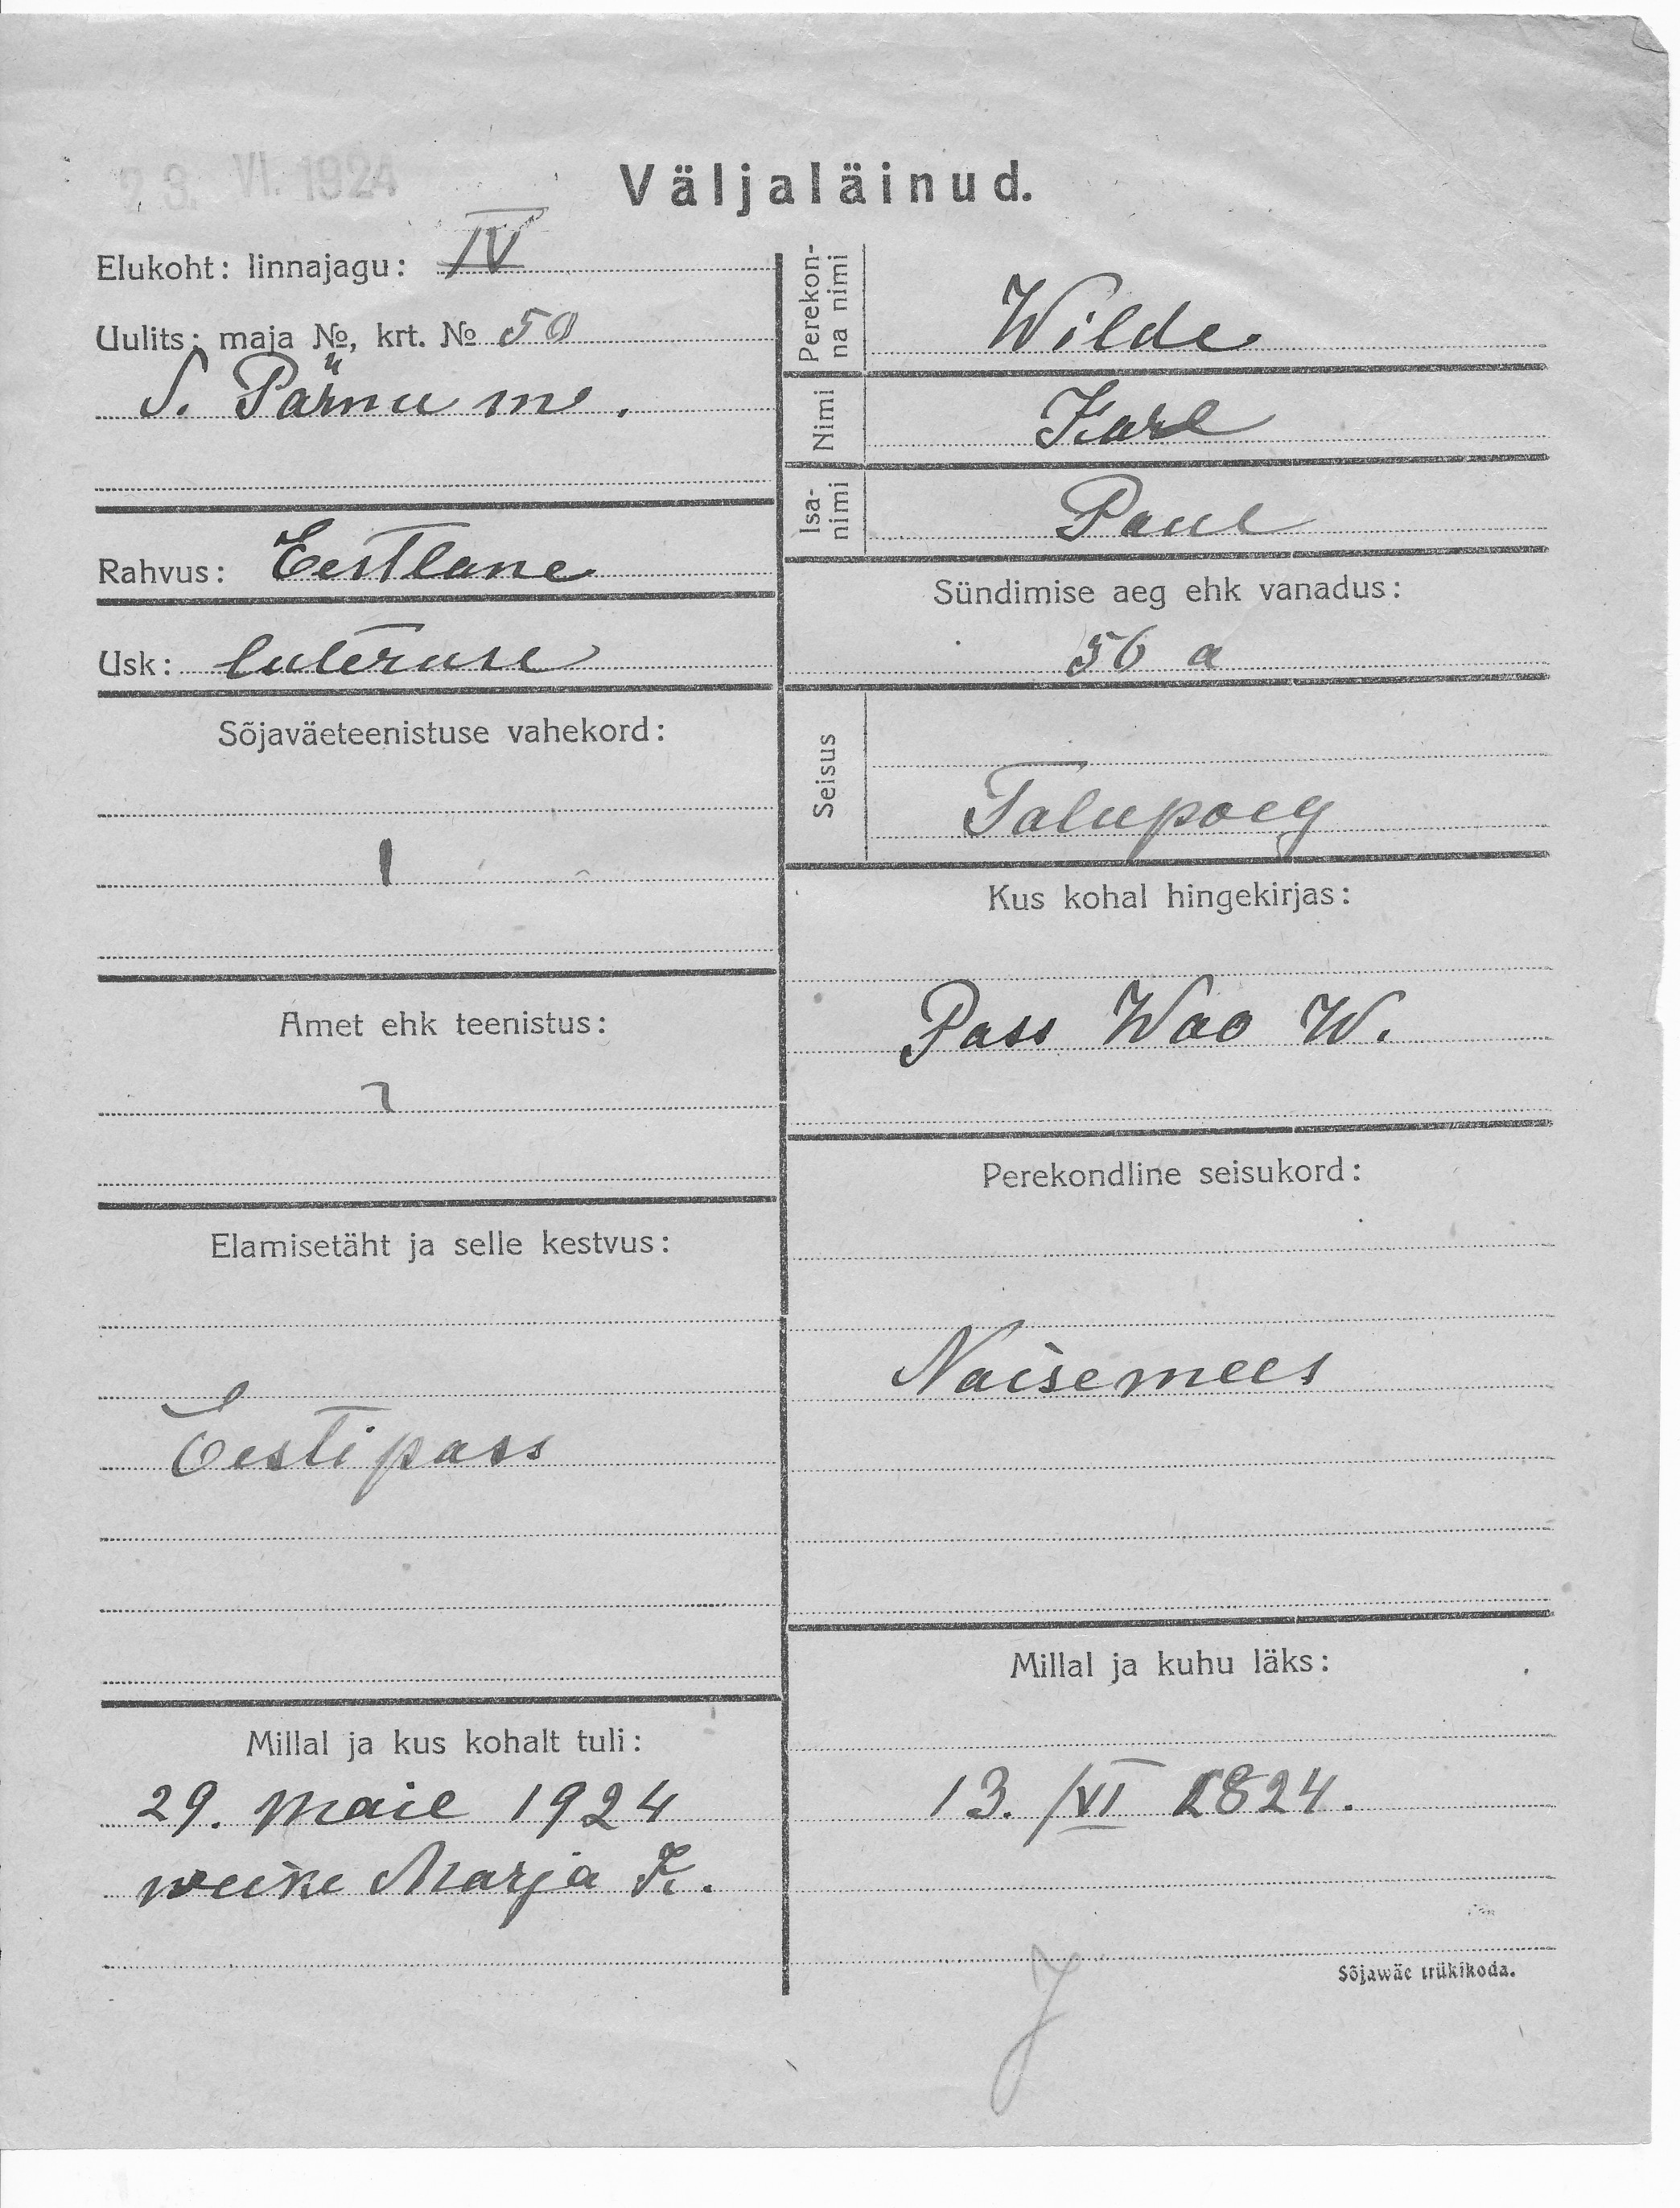 23. VI. 1924
Väljaläinud.
Elukoht: linnajagu: IV
Uulits: maja №, krt. № 50
S. Pärnu m.
Rahvus: Eestlane
Usk: luteruse
Sõjaväeteenistuse vahekord:
Amet ehk teenistus:
Elamisetäht ja selle kestvus:
Eesti pass
Millal ja kus kohalt tuli:
29. Mail 1924
weike Marja K.
Perekon-
na nimi
Wilde
Nimi
Karl
Isa-
nimi
Paul
Sündimise aeg ehk vanadus:
56 a
Seisus
Talupoeg
Kus kohal hingekirjas:
Pass Wao W.
Perekondline seisukord:
Naisemees
Millal ja kuhu läks:
13. /VI 1824.
Sõjawäe trükikoda.